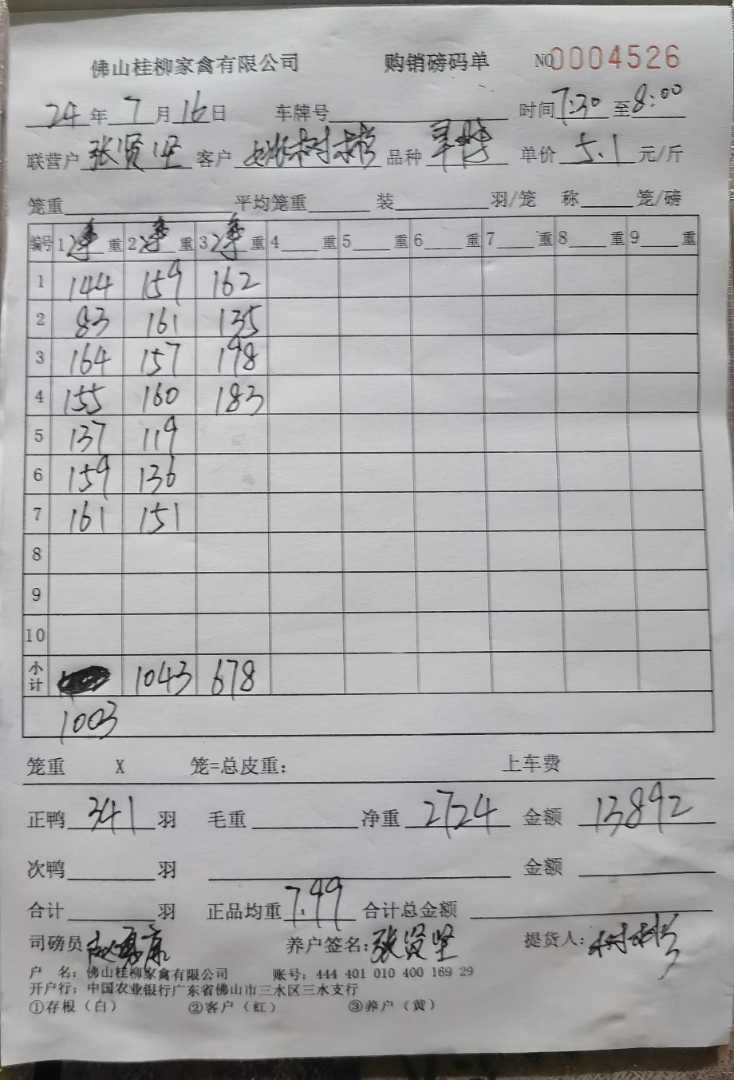 佛山桂柳家禽有限公司 购销磅码单 NO 0004526
24年7月16日 车牌号 时间7:30至8:00
联营户 张贤坚 客户 姚树彬 品种 单价 5.1 元/斤
笼重 平均笼重 装 羽/笼 称 笼/磅
编号 1净重 2净重 3净重 4 重 5 重 6 重 7 重 8 重 9 重
1 144 159 162
2 83 161 135
3 164 157 198
4 155 160 183
5 137 119
6 159 136
7 161 151
8
9
10
小计 1043 678
1003
笼重 X 笼=总皮重： 上车费
正鸭 341 羽 毛重 净重 2724 金额 13892
次鸭 羽 金额
合计 羽 正品均重 7.99 合计总金额
司磅员 养户签名：张贤坚 提货人：树彬
户 名：佛山桂柳家禽有限公司 账号：444 401 010 400 169 29
开户行：中国农业银行广东省佛山市三水区三水支行
①存根（白） ②客户（红） ③养户（黄）